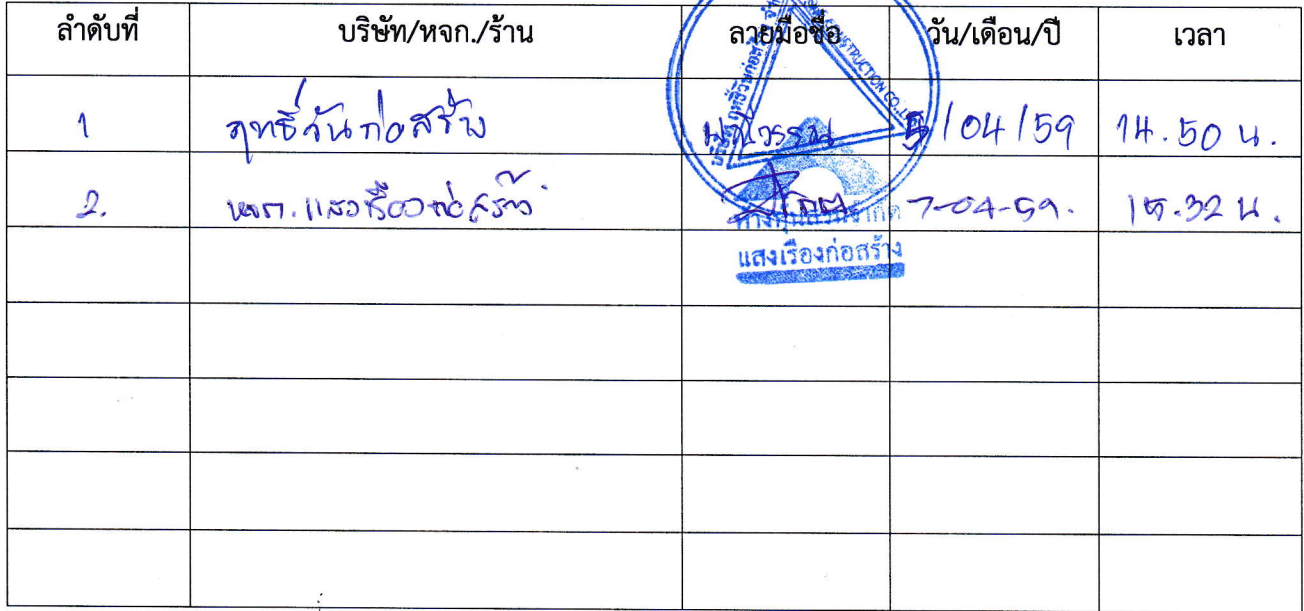 ลำดับที่ บริษัท/หจก./ร้าน ลายมือชื่อ วัน/เดือน/ปี เวลา
1 ฤทธิ์วันก่อสร้าง 5/04/59 14.50 น.
2. หจก.แสงเรืองก่อสร้าง 7-04-59. 15.32 น.
ห้างหุ้นส่วนจำกัด
แสงเรืองก่อสร้าง
CONSTRUCTION CO.,